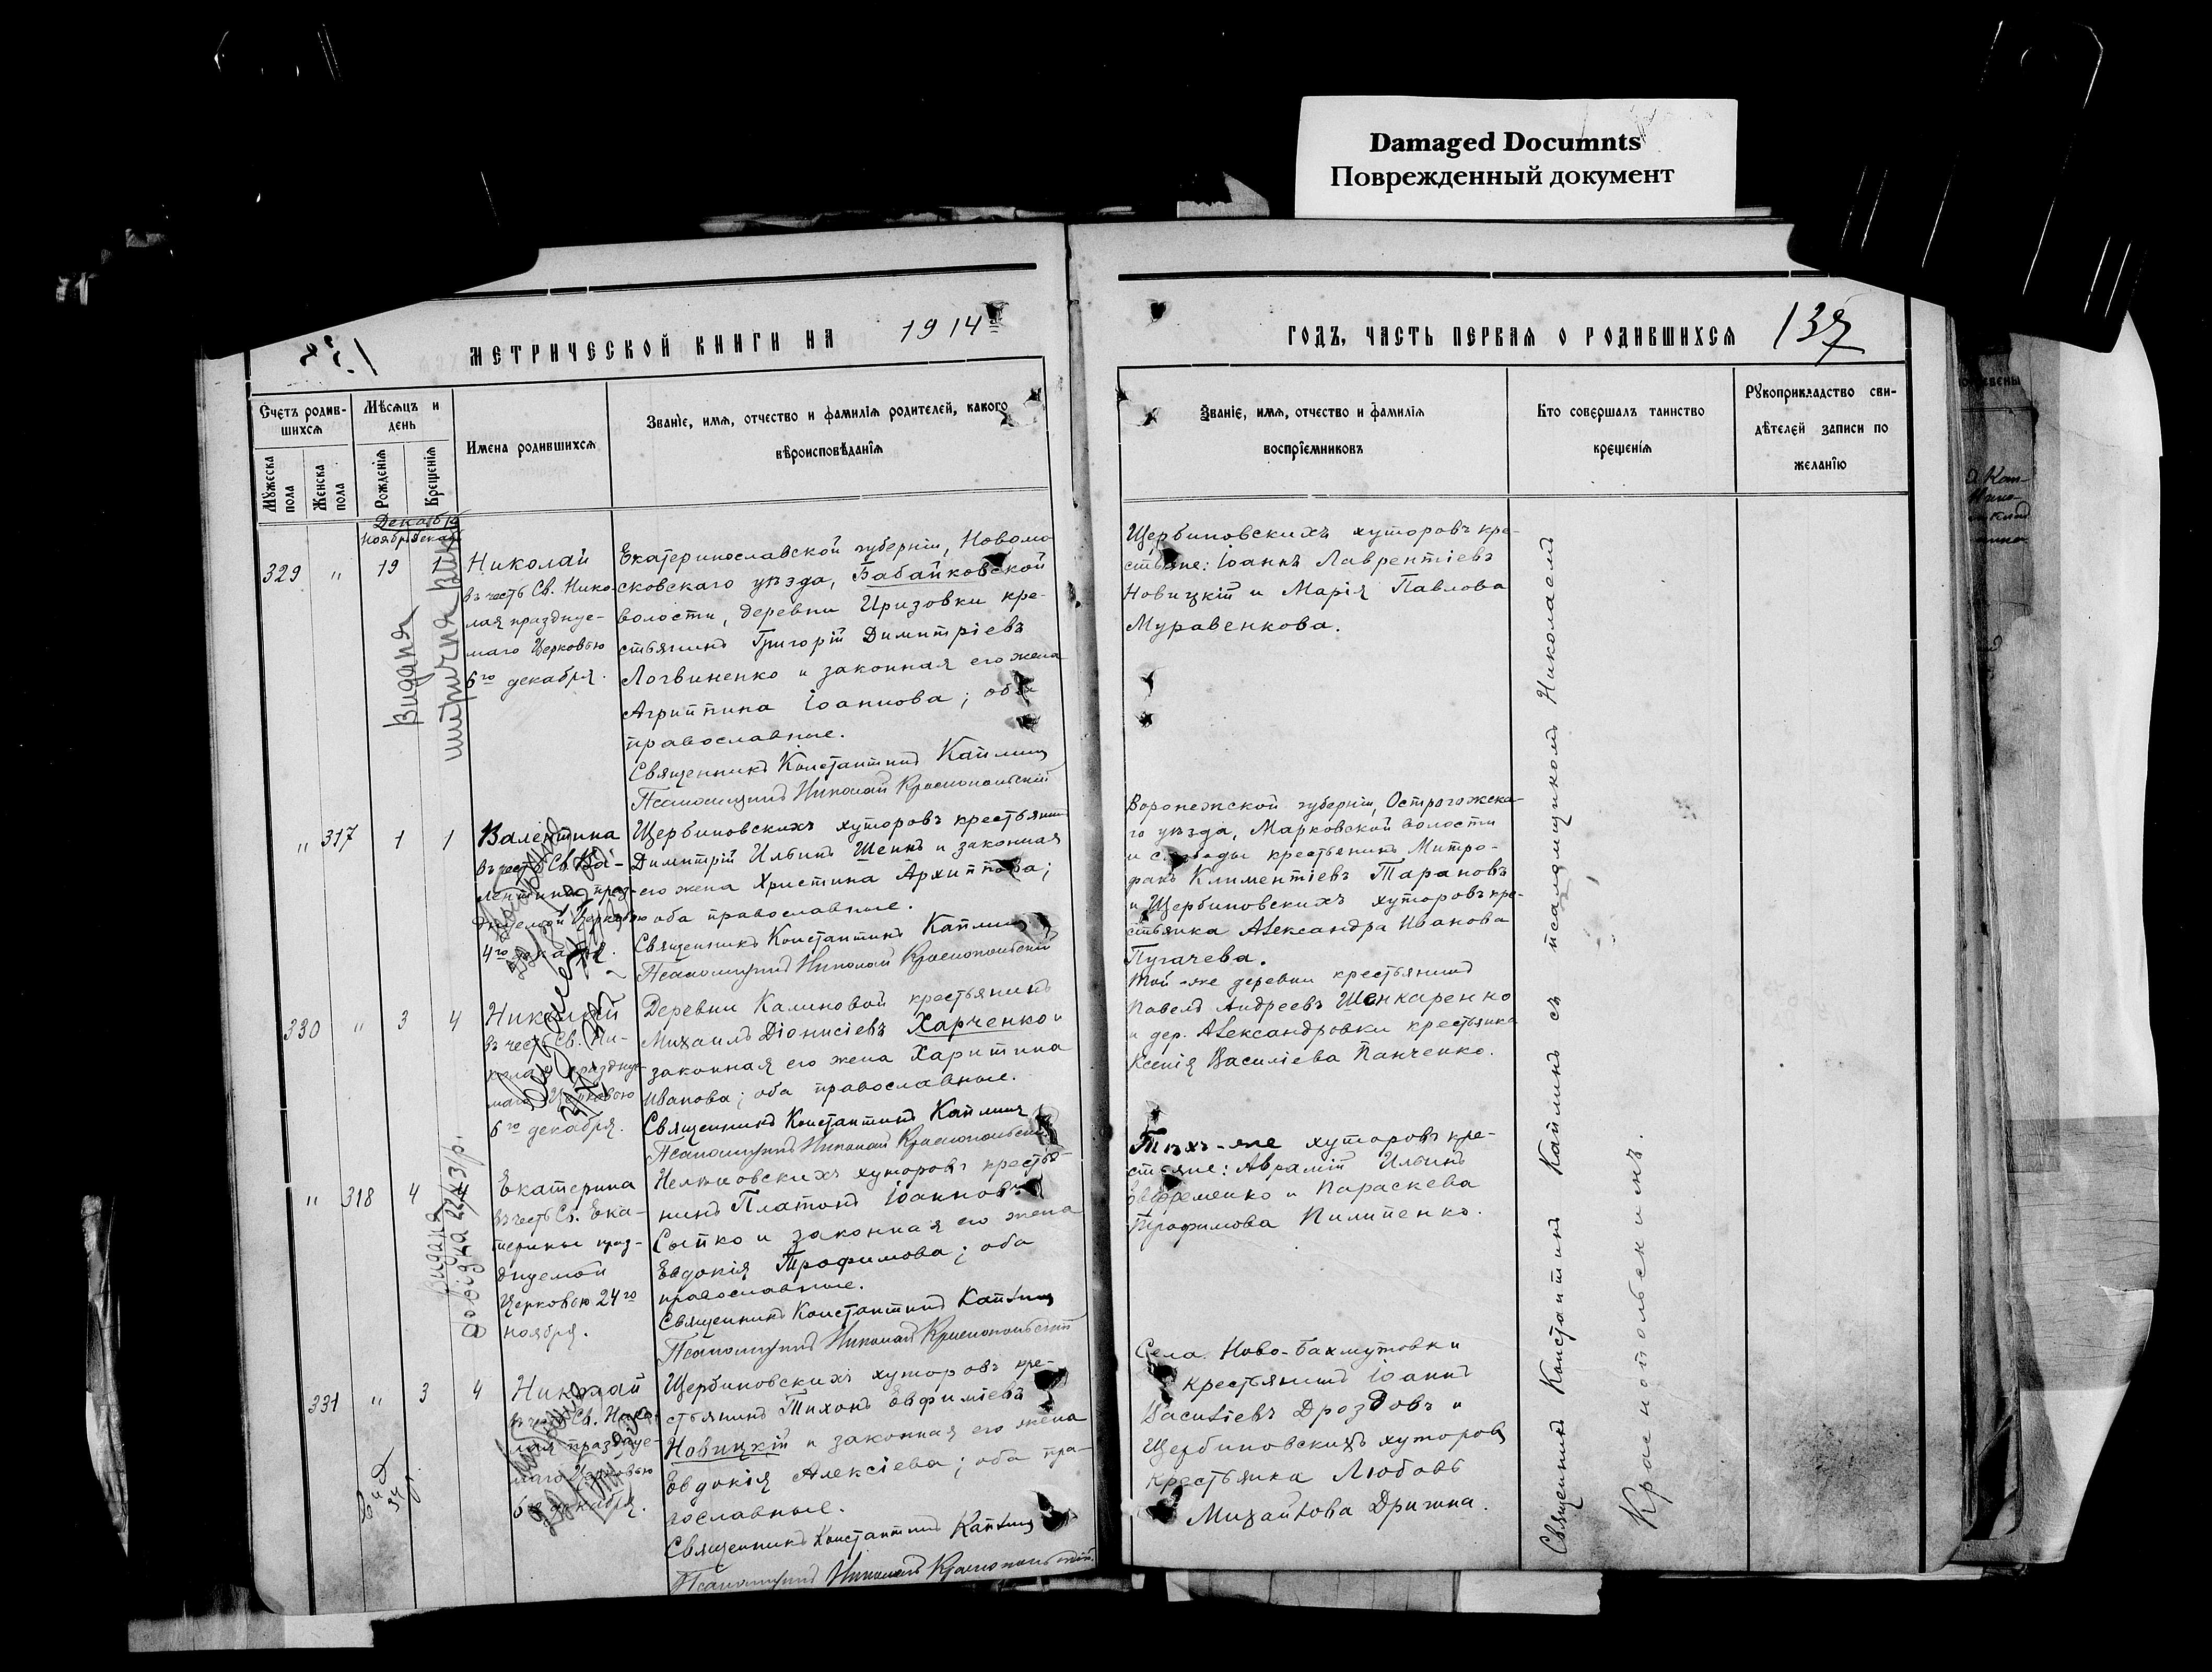 Damaged Documnts
Поврежденный документ
МЕТРИЧЕСКОЙ КНИГИ НА 1914
ГОДЪ, ЧАСТЬ ПЕРВАЯ О РОДИВШИХСЯ
137
Счетъ родив-
шихся
Мѣсяцъ и
день
Мужеска
пола
Женска
пола
Рожденія
Крещенія
Имена родившихся
Званіе, имя, отчество и фамилія родителей, какого
вѣроисповѣданія
Званіе, имя, отчество и фамилія
воспріемниковъ
Кто совершалъ таинство
крещенія
Рукоприкладство сви-
дѣтелей записи по
желанію
Декабрь
329 " 19 1
Николай
въ честь Св. Нико-
лая празднуе-
маго Церковью
6го декабря.
Екатеринославской губерніи, Новомо
сковскаго уѣзда, Бабайковской
волости, деревни Иризовки кре-
стьянинъ Григорій Димитріевъ
Логвиненко и законная его жена
Агриппина Іоаннова; оба
православные.
Священникъ Константинъ Каплинъ
Псаломщикъ Николай Краснопольскій
Щербиновскихъ хуторовъ кре-
стьяне: Іоаннъ Лаврентіевъ
Новицкій и Марія Павлова
Муравенкова.
видана
" 317 1 1
Валентина
въ честь Св. Ва-
лентины праз-
днуемой Церковью
4го
Щербиновскихъ хуторовъ крестьянинъ
Димитрій Ильинъ Шеинъ и законная
его жена Христина Архиппова;
оба православные.
Священникъ Константинъ Каплинъ
Псаломщикъ Николай Краснопольскій
Воронежской губерніи, Острогожска-
го уѣзда, Марковской волости
и слободы крестьянинъ Митро-
фанъ Климентіевъ Тарановъ
и Щербиновскихъ хуторовъ кре-
стьянка Александра Иванова
Пугачева.
330 " 3 4
Николай
въ честь Св. Ни-
колая празднуе-
маго Церковью
6го декабря.
Деревни Калиновой крестьянинъ
Михаилъ Діонисіевъ Харченко и
законная его жена Харитина
Иванова; оба православные.
Священникъ Константинъ Каплинъ
Псаломщикъ Николай Краснопольскій
Той-же деревни крестьянинъ
Павелъ Андреевъ Шенкаренко
и дер. Александровки крестьянка
Ксенія Василіева Панченко.
" 318 4
Екатерина
въ честь Св. Ека-
терины праз-
днуемой
Церковью 24го
ноября.
Нелѣповскихъ хуторовъ крестья-
нинъ Платонъ Іоанновъ
Сыпко и законная его жена
Евдокія Трофимова; оба
православные.
Священникъ Константинъ Каплинъ
Псаломщикъ Николай Краснопольскій
Тѣхъ-же хуторовъ кре-
стьяне: Аврамій Ильинъ
Евфременко и Параскева
Трофимова Пилипенко.
видана
довідка
331 " 3 4
Николай
въ честь Св. Нико-
лая празднуе-
маго Церковью
6го декабря.
Щербиновскихъ хуторовъ кре-
стьянинъ Тихонъ Евфиміевъ
Новицкій и законная его жена
Евдокія Алексіева; оба пра-
вославные.
Священникъ Константинъ Каплинъ
Псаломщикъ Николай Краснопольскій
Села Ново-Бахмутовки
крестьянинъ Іоаннъ
Василіевъ Дроздовъ и
Щербиновскихъ хуторовъ
крестьянка Любовь
Михайлова Дригина.
Священникъ Константинъ Каплинъ съ псаломщикомъ Николаемъ
Краснопольскимъ.